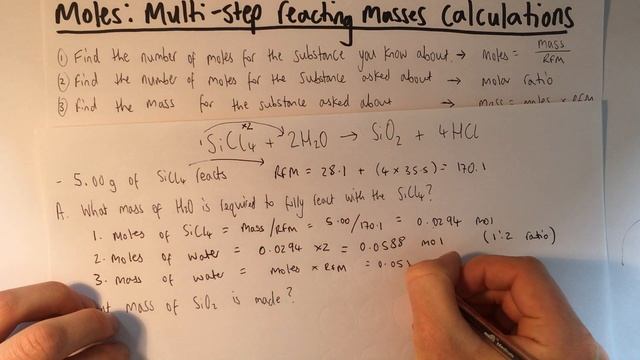 Moles: Multi-step reacting masses calculations
① Find the number of moles for the substance you know about → moles = mass / RFM
② Find the number of moles for the substance asked about → molar ratio
③ Find the mass for the substance asked about → mass = moles x RFM
x2
SiCl₄ + 2H₂O → SiO₂ + 4HCl
- 5.00g of SiCl₄ reacts RFM = 28.1 + (4 x 35.5) = 170.1
A. What mass of H₂O is required to fully react with the SiCl₄?
1. Moles of SiCl₄ = Mass/RFM = 5.00/170.1 = 0.0294 mol
2. moles of water = 0.0294 x2 = 0.0588 mol (1:2 ratio)
3. mass of water = moles x RFM = 0.05
mass of SiO₂ is made?